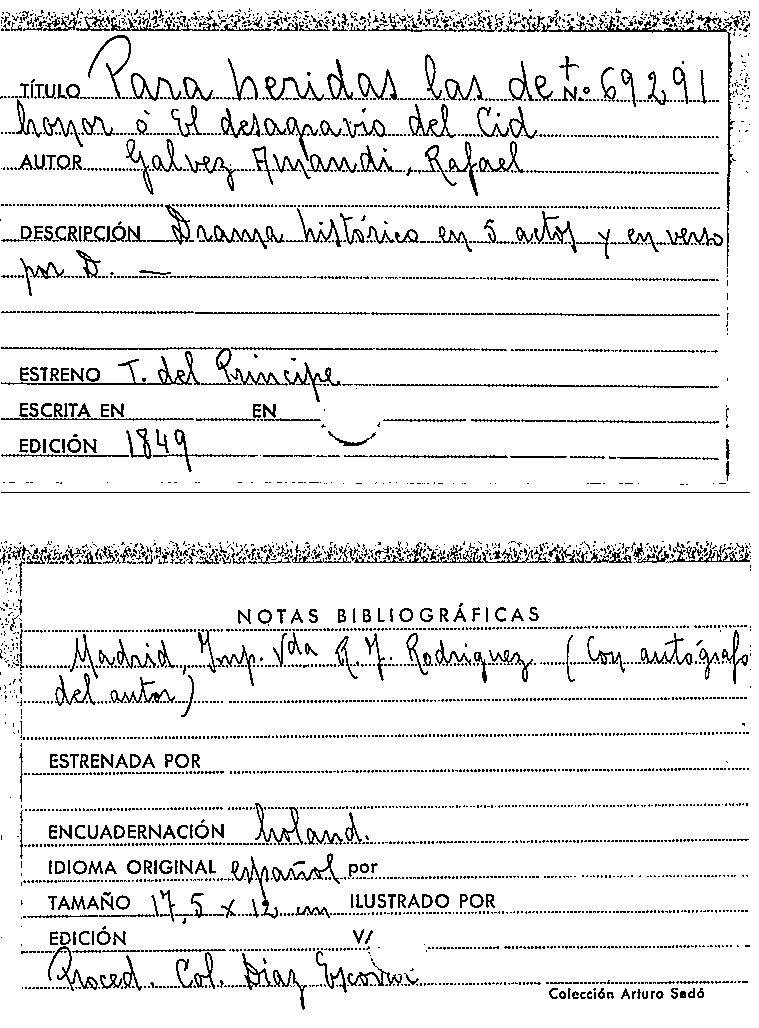 TÍTULO Para heridas las de + N.º 69291
honor ó El desagravio del Cid
AUTOR Galvez Amandi, Rafael
DESCRIPCIÓN Drama histórico en 5 actos y en verso
por D. —
ESTRENO T. del Principe
ESCRITA EN EN
EDICIÓN 1849
NOTAS BIBLIOGRÁFICAS
Madrid, Imp. Vda R. J. Rodriguez (Con autógrafo
del autor)
ESTRENADA POR
ENCUADERNACIÓN holand.
IDIOMA ORIGINAL español por
TAMAÑO 17,5 x 12 cm ILUSTRADO POR
EDICIÓN V/
Proced. Col. Diaz Escovar
Colección Arturo Sedó